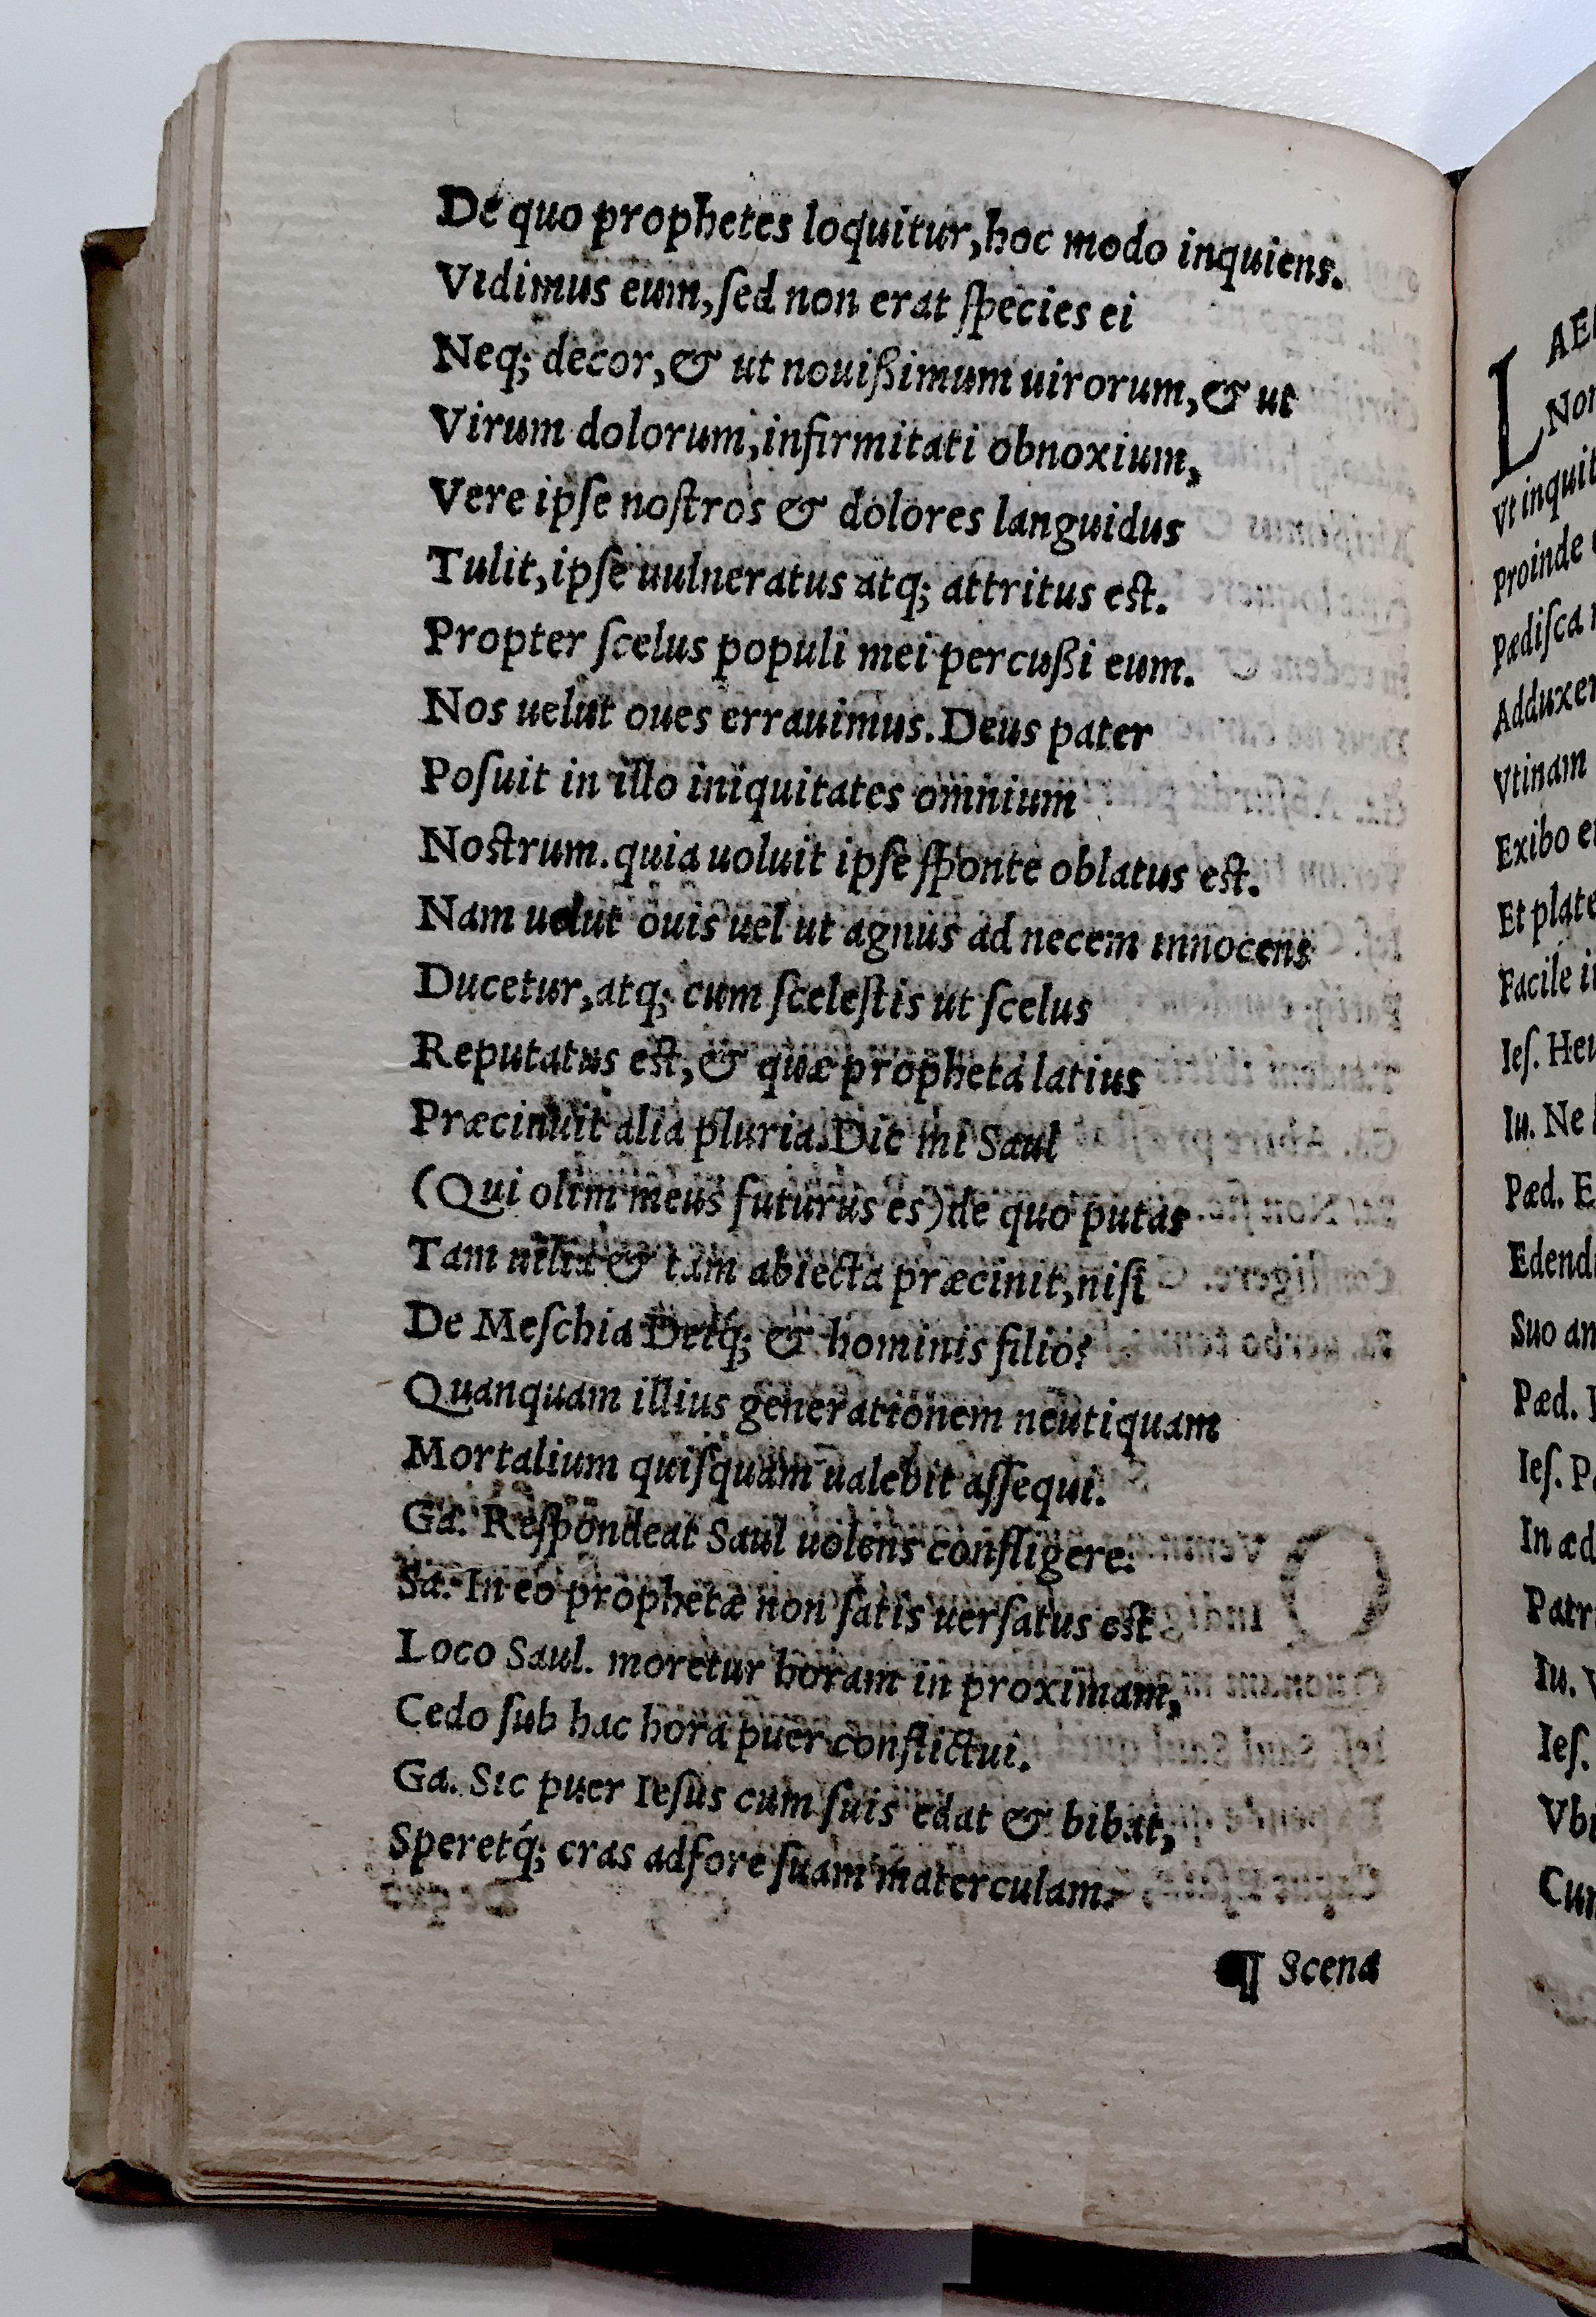 De quo prophetes loquitur, hoc modo inquiens.
Vidimus eum, ſed non erat ſpecies ei
Neq; decor, & ut nouißimum uirorum, & ut
Virum dolorum, infirmitati obnoxium,
Vere ipſe noſtros & dolores languidus
Tulit, ipſe uulneratus atq; attritus eſt.
Propter ſcelus populi mei percußi eum.
Nos uelut oues errauimus. Deus pater
Poſuit in illo iniquitates omnium
Noſtrum. quia uoluit ipſe ſponte oblatus eſt.
Nam uelut ouis uel ut agnus ad necem innocens
Ducetur, atq; cum ſceleſtis ut ſcelus
Reputatus eſt, & quæ propheta latius
Præcinuit alia pluria. Dic mi Saul
(Qui olim meus futurus es) de quo putas
Tam uilia & tam abiecta præcinit, niſi
De Meſchia Deiq́; & hominis filio?
Quanquam illius generationem neutiquam
Mortalium quiſquam ualebit aſſequi.
Ga. Reſpondeat Saul uolens confligere.
Sa. In eo prophetæ non ſatis uerſatus eſt
Loco Saul. moretur horam in proximam,
Cedo ſub hac hora puer conflictui.
Ga. Sic puer Ieſus cum ſuis edat & bibat,
Speretq́; cras adfore ſuam materculam.
¶ Scena
L
AE
Non
Vt inquit
Proinde
Pædiſca
Adduxer
Vtinam
Exibo
Et plate
Facile
Ieſ. Heu
Iu. Ne
Pæd. E
Edend
Suo an
Pæd.
Ieſ. P
In æd
Patr
Iu. V
Ieſ.
Vbi
Cum